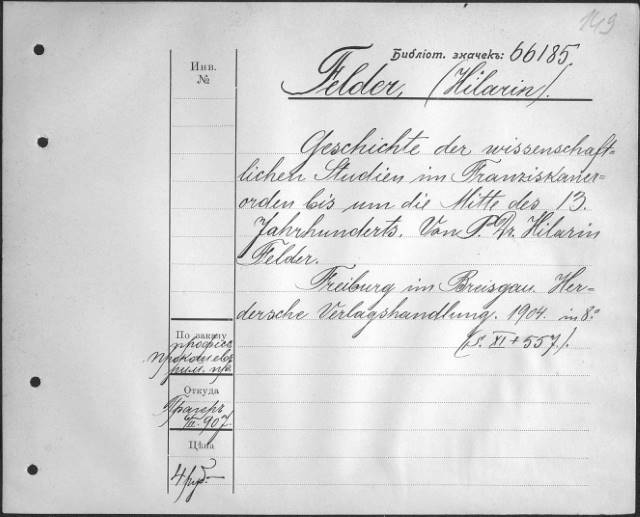 149
Библіот. значекъ: 66185.
Инв.
№
Felder, (Hilarin).
Geschichte der wissenschaft=
lichen Studien im Franziskaner=
orden bis um die Mitte des 13.
Jahrhunderts. Von P. Dr. Hilarin
Felder.
Freiburg im Breisgau. Her-
dersche Verlagshandlung. 1904. in 8º
(S. XI + 557.).
По заказу
професс.
Откуда
Прагеръ
907.
Цѣна
4 руб.-